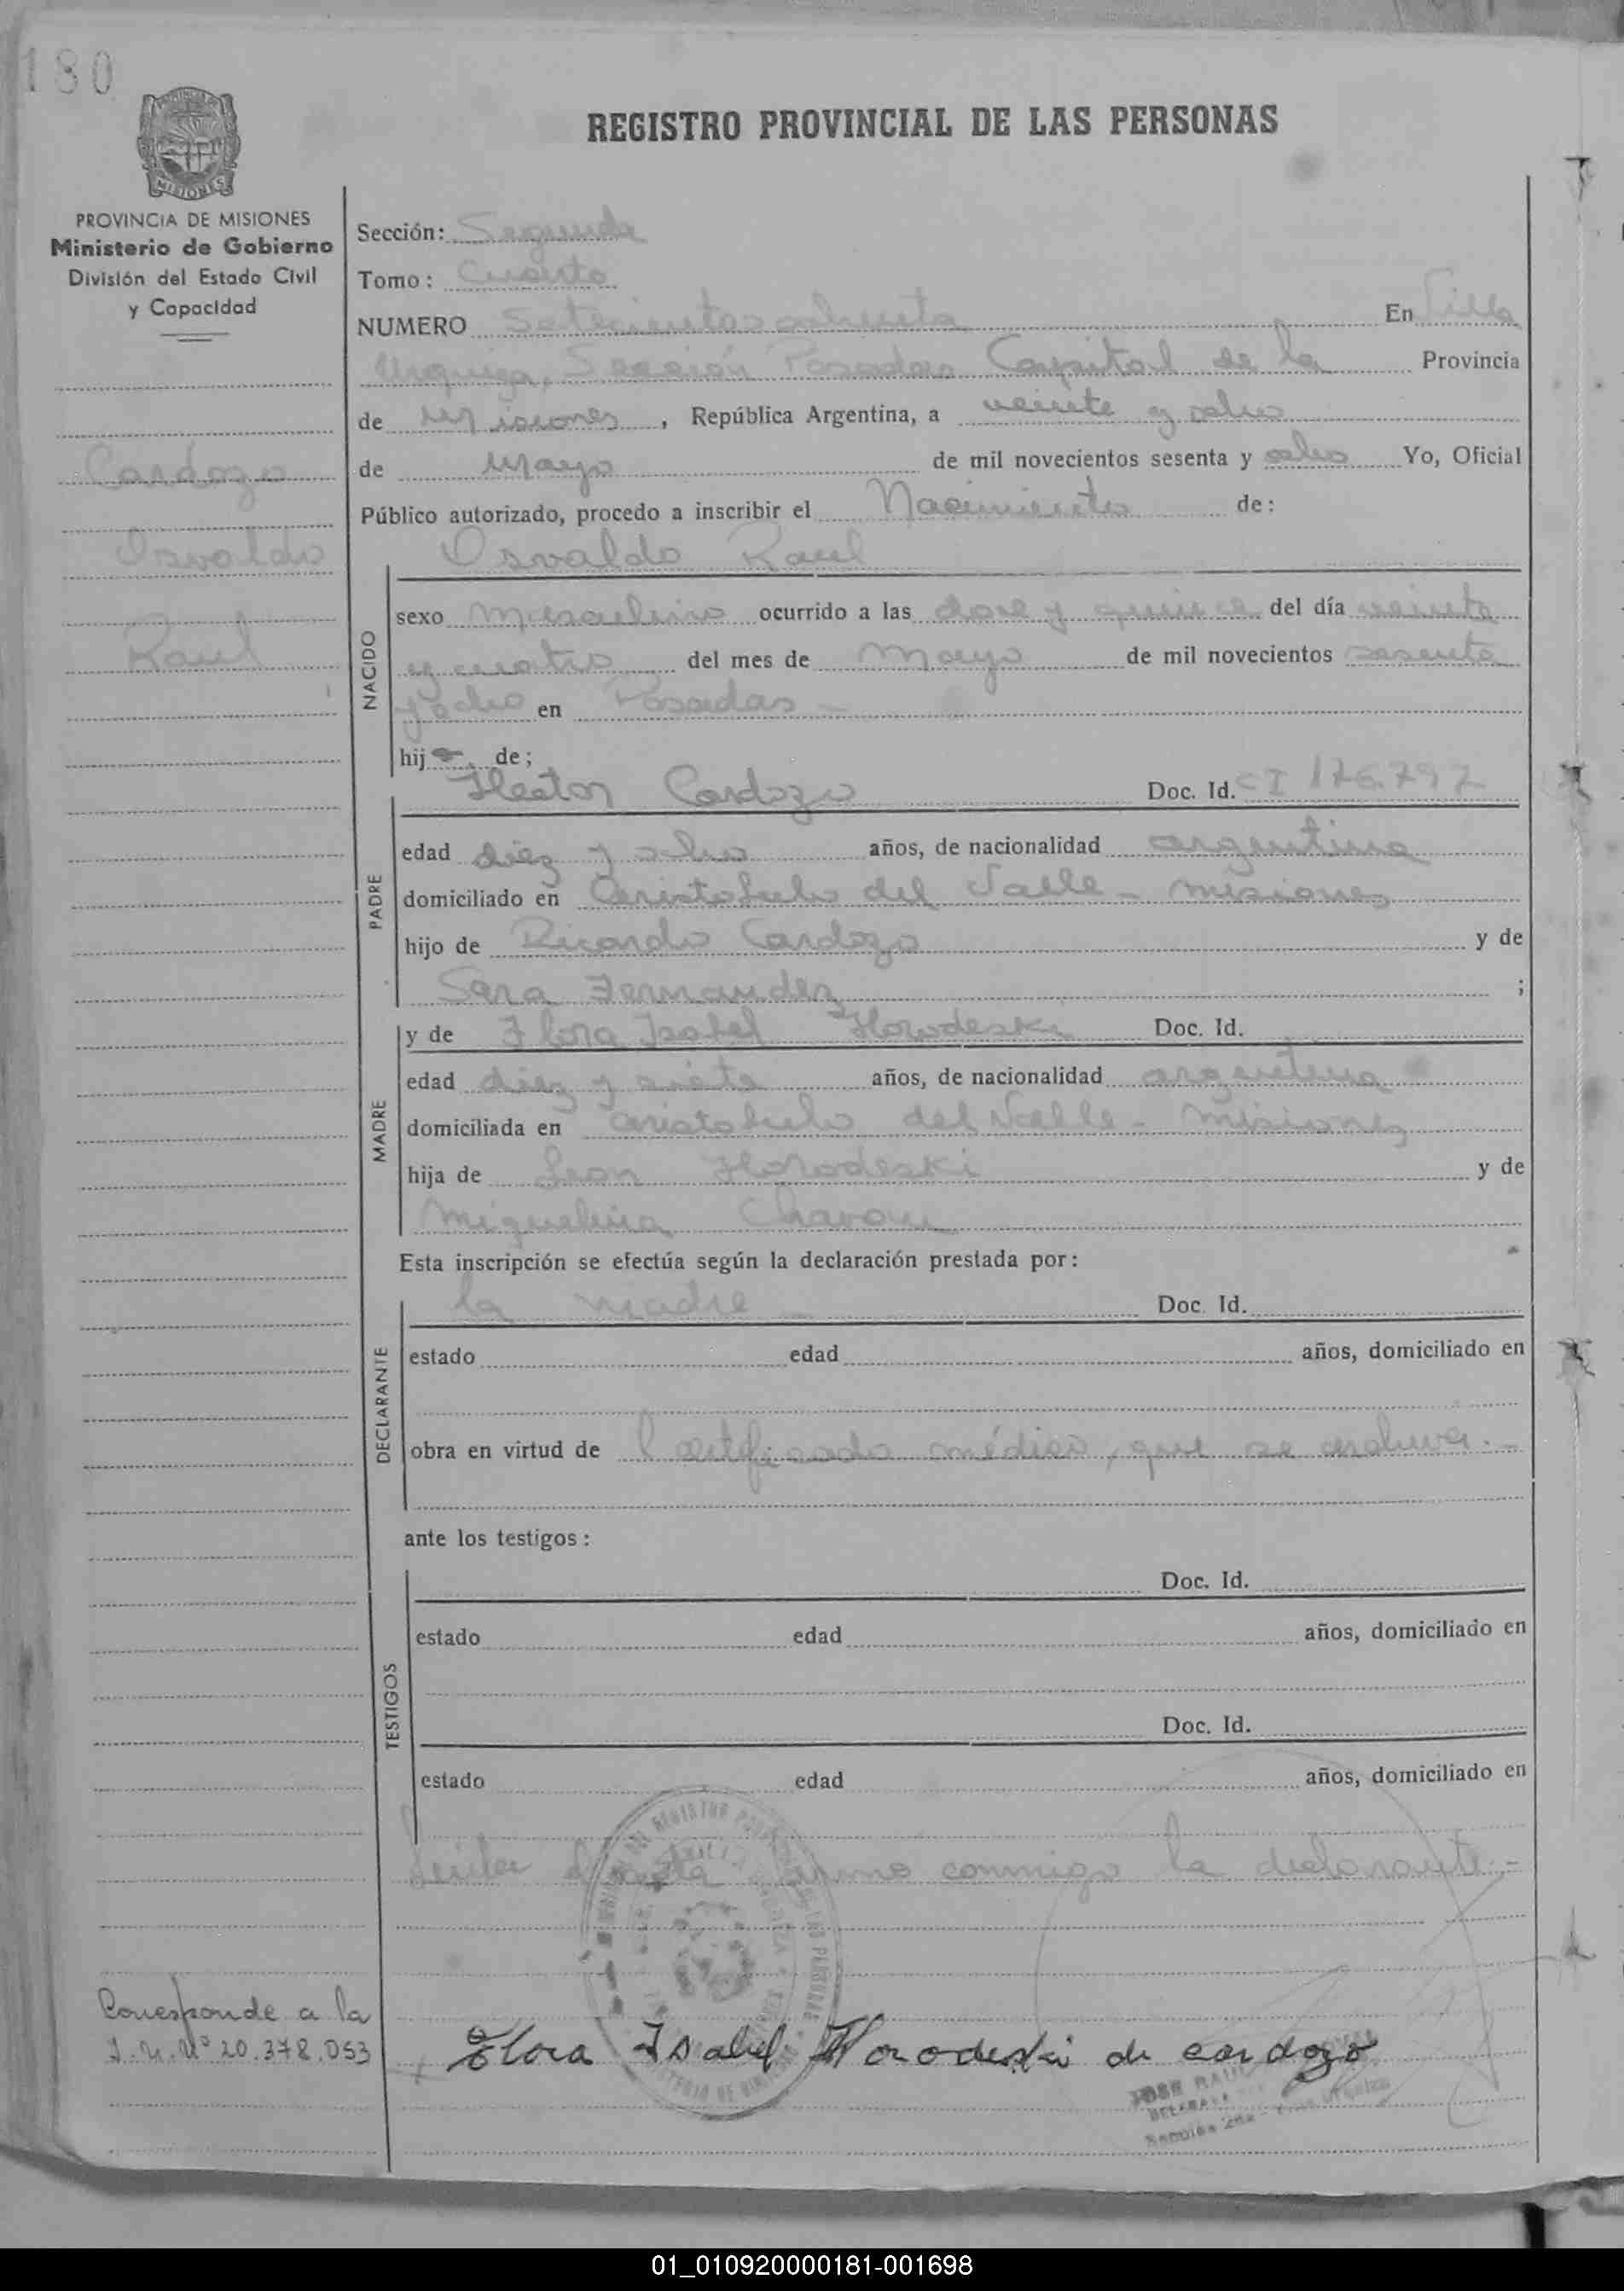 180
REGISTRO PROVINCIAL DE LAS PERSONAS
PROVINCIA DE MISIONES
Ministerio de Gobierno
División del Estado Civil
y Capacidad
Cardozo
Osvaldo
Raul
Sección: Segunda
Tomo: Cuarto
NUMERO Setecientos ochenta En Villa
Urquiza, Sección Posadas Capital de la Provincia
de Misiones, República Argentina, a veinte y ocho
de Mayo de mil novecientos sesenta y ocho Yo, Oficial
Público autorizado, procedo a inscribir el Nacimiento de:
Osvaldo Raul
NACIDO
sexo masculino ocurrido a las doce y quince del día veinte
y cuatro del mes de Mayo de mil novecientos sesenta
y ocho en Posadas -
hijo de;
Hector Cardozo Doc. Id. CI 176.797
PADRE
edad diez y ocho años, de nacionalidad argentina
domiciliado en Aristobulo del Valle - Misiones
hijo de Ricardo Cardozo y de
Sara Fernandez ;
y de Flora Isabel Horodeski Doc. Id.
MADRE
edad diez y siete años, de nacionalidad argentina
domiciliada en Aristobulo del Valle - Misiones
hija de Leon Horodeski y de
Miguelina
Esta inscripción se efectúa según la declaración prestada por:
la madre - Doc. Id.
DECLARANTE
estado edad años, domiciliado en
obra en virtud de Certificado médico, que se archiva.-
ante los testigos:
Doc. Id.
TESTIGOS
estado edad años, domiciliado en
Doc. Id.
estado edad años, domiciliado en
firma conmigo la declarante.-
Corresponde a la
Nº 20.378.053
Flora Isabel Horodeski de cardozo
JOSE RAUL
01_010920000181-001698